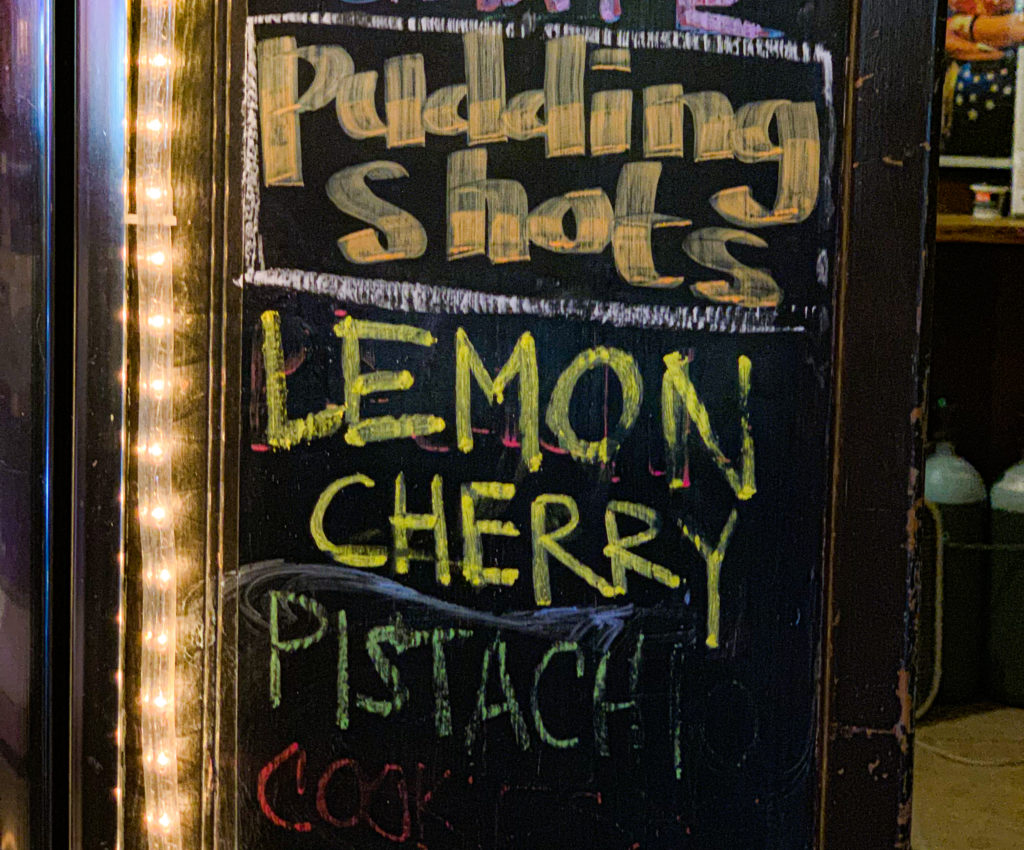 Pudding
Shots
LEMON
CHERRY
PISTACHIO
COOKIES